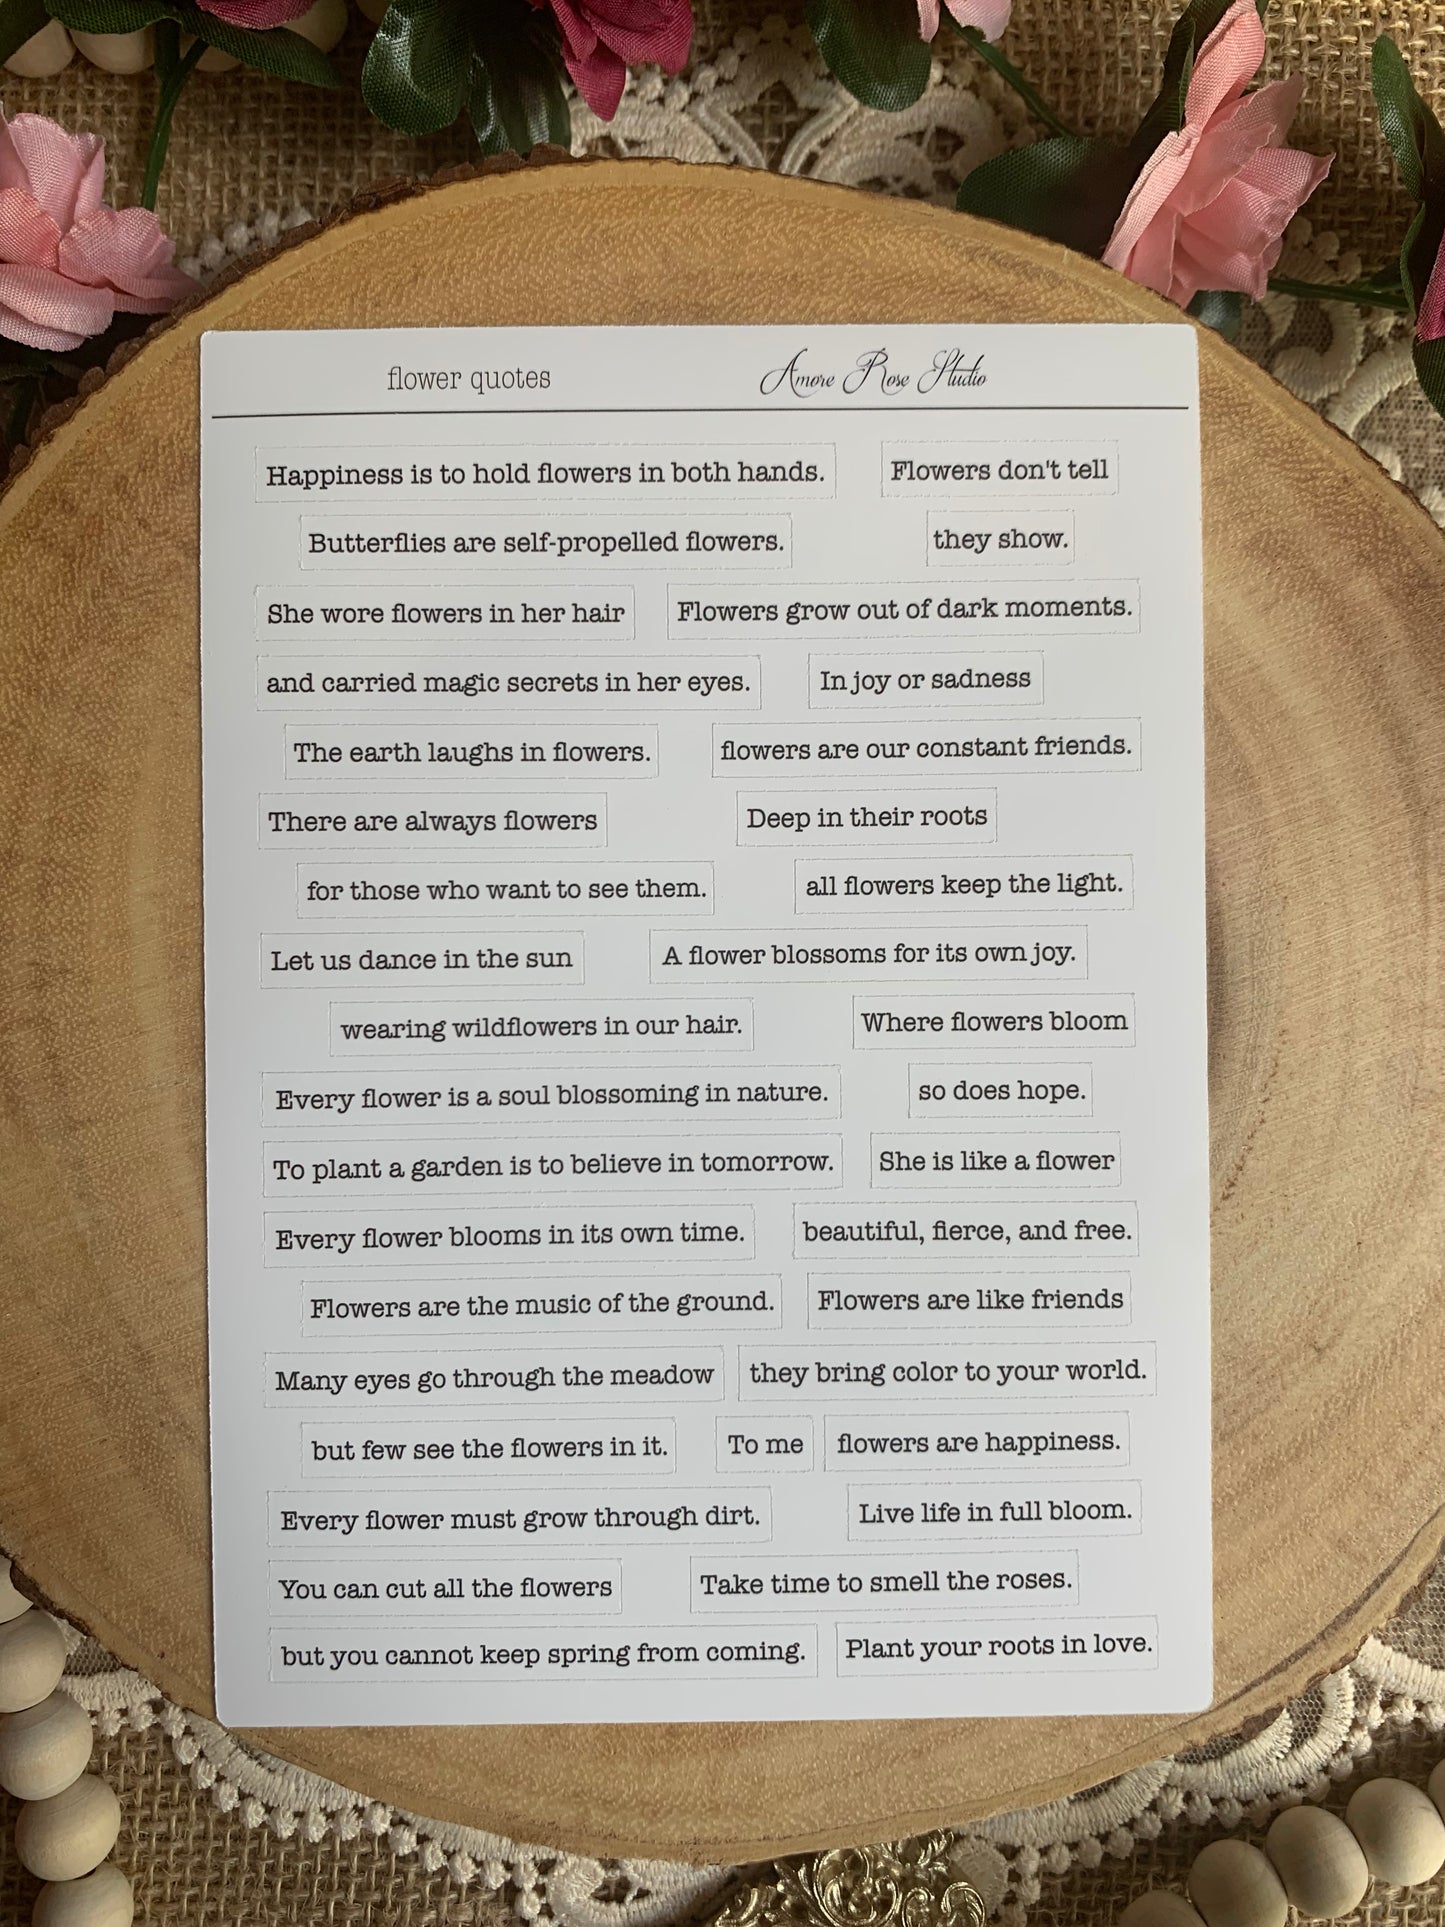 flower quotes
Amore Rose Studio
Happiness is to hold flowers in both hands.
Flowers don't tell
Butterflies are self-propelled flowers.
they show.
She wore flowers in her hair
Flowers grow out of dark moments.
and carried magic secrets in her eyes.
In joy or sadness
The earth laughs in flowers.
flowers are our constant friends.
There are always flowers
Deep in their roots
for those who want to see them.
all flowers keep the light.
Let us dance in the sun
A flower blossoms for its own joy.
wearing wildflowers in our hair.
Where flowers bloom
Every flower is a soul blossoming in nature.
so does hope.
To plant a garden is to believe in tomorrow.
She is like a flower
Every flower blooms in its own time.
beautiful, fierce, and free.
Flowers are the music of the ground.
Flowers are like friends
Many eyes go through the meadow
they bring color to your world.
but few see the flowers in it.
To me
flowers are happiness.
Every flower must grow through dirt.
Live life in full bloom.
You can cut all the flowers
Take time to smell the roses.
but you cannot keep spring from coming.
Plant your roots in love.